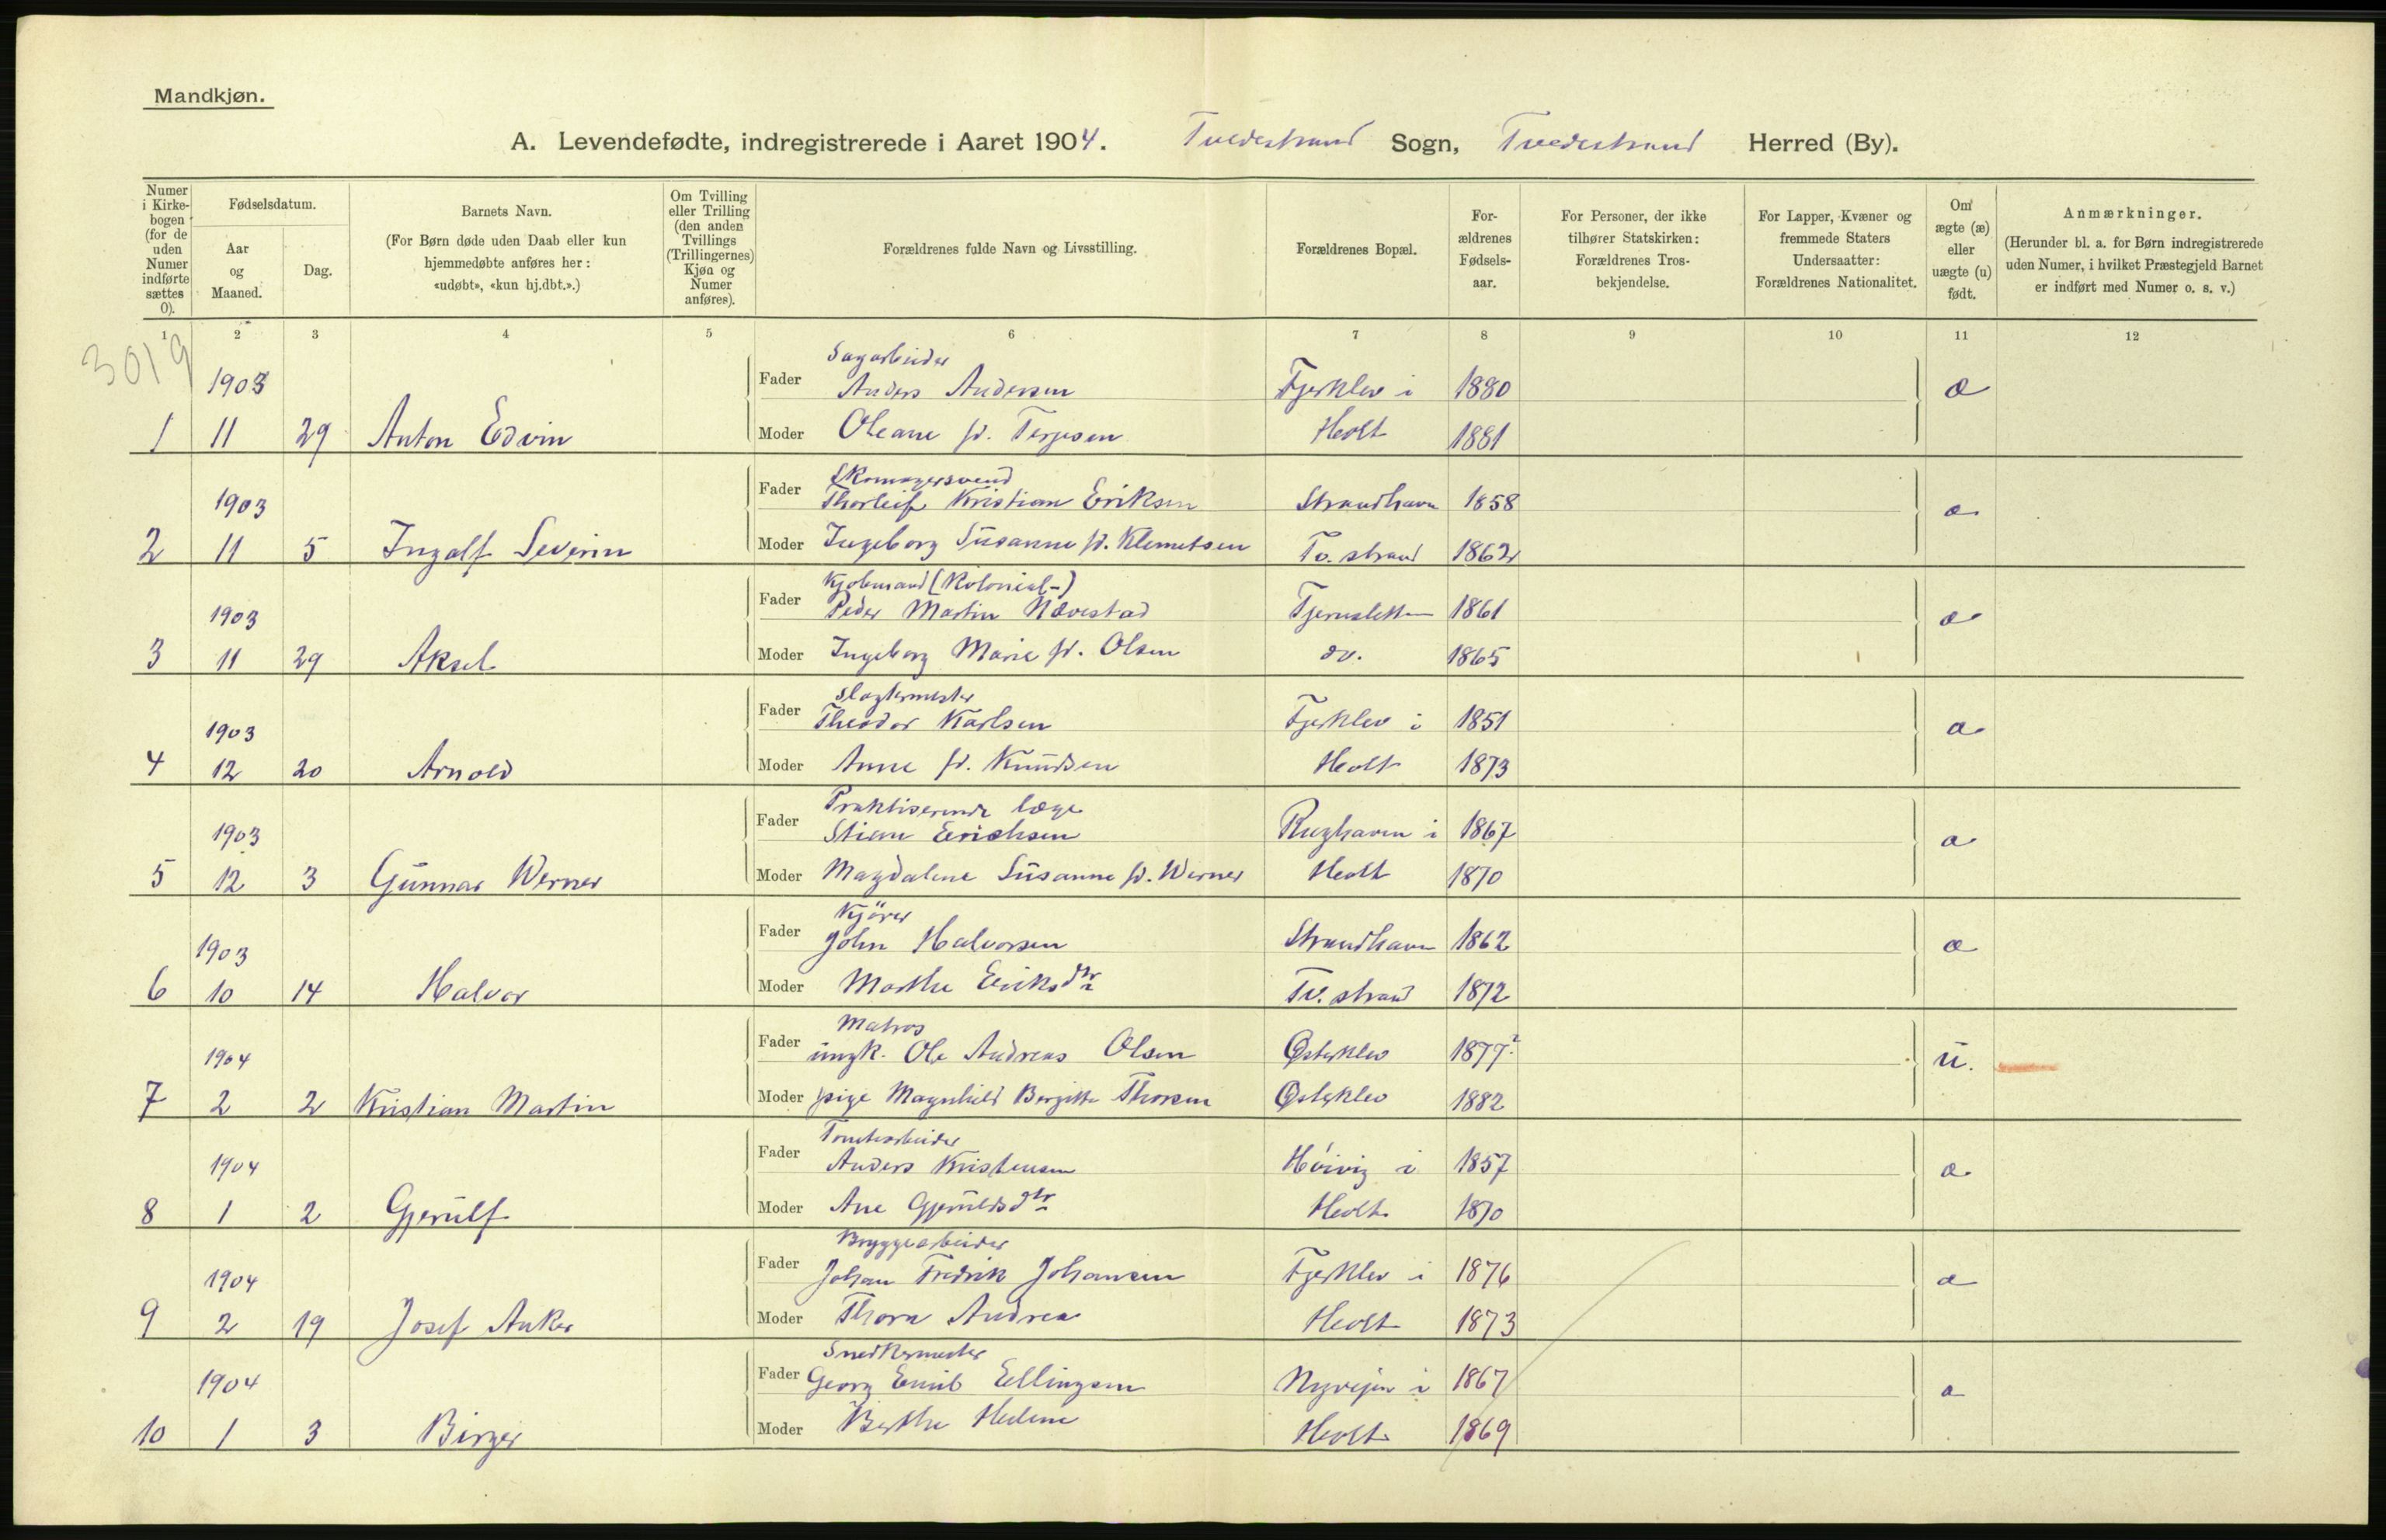 Mandkjøn.
A. Levendefødte, indregistrerede i Aaret 1904. Tvedestrand Sogn, Tvedestrand Herred (By).
Numer i Kirkebogen (for de uden Numer indførte sættes 0).
Fødselsdatum.
Aar og Maaned.
Dag.
Barnets Navn.
(For Børn døde uden Daab eller kun hjemmedøbte anføres her: «udøbt», «kun hj.dbt.».)
Om Tvilling eller Trilling (den anden Tvillings (Trillingernes) Kjøn og Numer anføres).
Forældrenes fulde Navn og Livsstilling.
Forældrenes Bopæl.
For-ældrenes Fødsels-aar.
For Personer, der ikke tilhører Statskirken: Forældrenes Tros-bekjendelse.
For Lapper, Kvæner og fremmede Staters Undersaatter: Forældrenes Nationalitet.
Om ægte (æ) eller uægte (u) født.
Anmærkninger.
(Herunder bl. a. for Børn indregistrerede uden Numer, i hvilket Præstegjeld Barnet er indført med Numer o. s. v.)
1 2 3 4 5 6 7 8 9 10 11 12
3019
Sagarbeider
1903 Fader Anders Andersen Fjerklev i 1880 æ
1 11 29 Anton Edvin Moder Oleane f. Terjesen Holt 1881
Skomagersvend
1903 Fader Thorleif Kristian Eriksen Strandhavn 1858 æ
2 11 5 Ingolf Severin Moder Ingeborg Susanne f. Klemetsen Tv. strand 1862
Kjøbmand (Kolonial-)
1903 Fader Peder Martin Nævestad Tjernsletten 1861 æ
3 11 29 Aksel Moder Ingeborg Marie f. Olsen do. 1865
Slagtermester
1903 Fader Theodor Karlsen Fjerklev i 1851 æ
4 12 20 Arnold Moder Anne f. Knudsen Holt 1873
Praktiserende læge
1903 Fader Stian Erichsen Rughaven i 1867 æ
5 12 3 Gunnar Werner Moder Magdalene Susanne f. Werner Holt 1870
Kjörer
1903 Fader John Halvorsen Strandhavn 1862 æ
6 10 14 Halvor Moder Marthe Eriksdtr Tv. strand 1872
Matros
1904 Fader ungk. Ole Andreas Olsen Østerklev 1877? u.
7 2 2 Kristian Martin Moder pige Magnhild Bergitte Thorsen Østerklev 1882
Tomtearbeider
1904 Fader Anders Kristensen Höivig i 1857 æ
8 1 2 Gjerulf Moder Ane Gjeruldsdtr Holt 1870
Bryggearbeider
1904 Fader Johan Fredrik Johansen Fjerklev i 1876 æ
9 2 19 Josef Anker Moder Thora Andrea Holt 1873
Snedkermester
1904 Fader Georg Emil Ellingsen Nyveien i 1867 æ
10 1 3 Birger Moder Berthe Helene Holt 1869